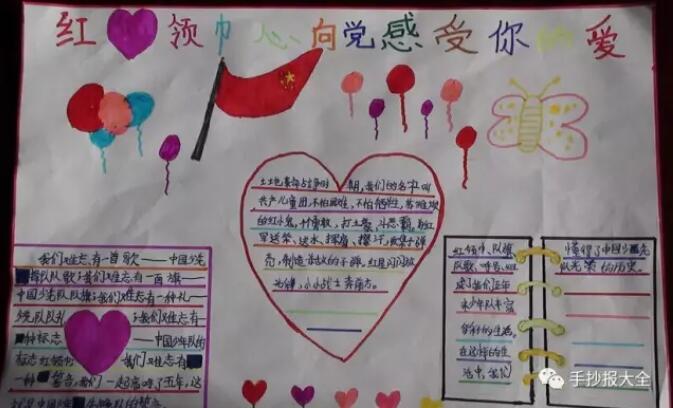 红领巾心向党感受你的爱
土地革命战争时期,我们的名字叫
共产儿童团,不怕困难,不怕牺牲,苦难
的红小鬼,打土豪,斗恶霸,
军送茶,送水,探消,
亮,制造的不弹,红星闪闪放
光辉,小小战士奔前方。
我们难忘,有一首歌——中国少先
队队歌;我们难忘有一面旗——
中国少先队队旗;我们难忘有一种礼——
少先队队礼;我们难忘有
一种标志——中国少年队的
标志红领巾;我们难忘有
一种誓言;我们一起高呼了五年,这
就是中国少先队的誓言
红领巾、队旗
队歌、呼号、组
成了我们五年
来少年队丰富
多彩的生活。
在这样的生
活中,我们
懂得了中国少先
队光荣的历史。
手抄报大全